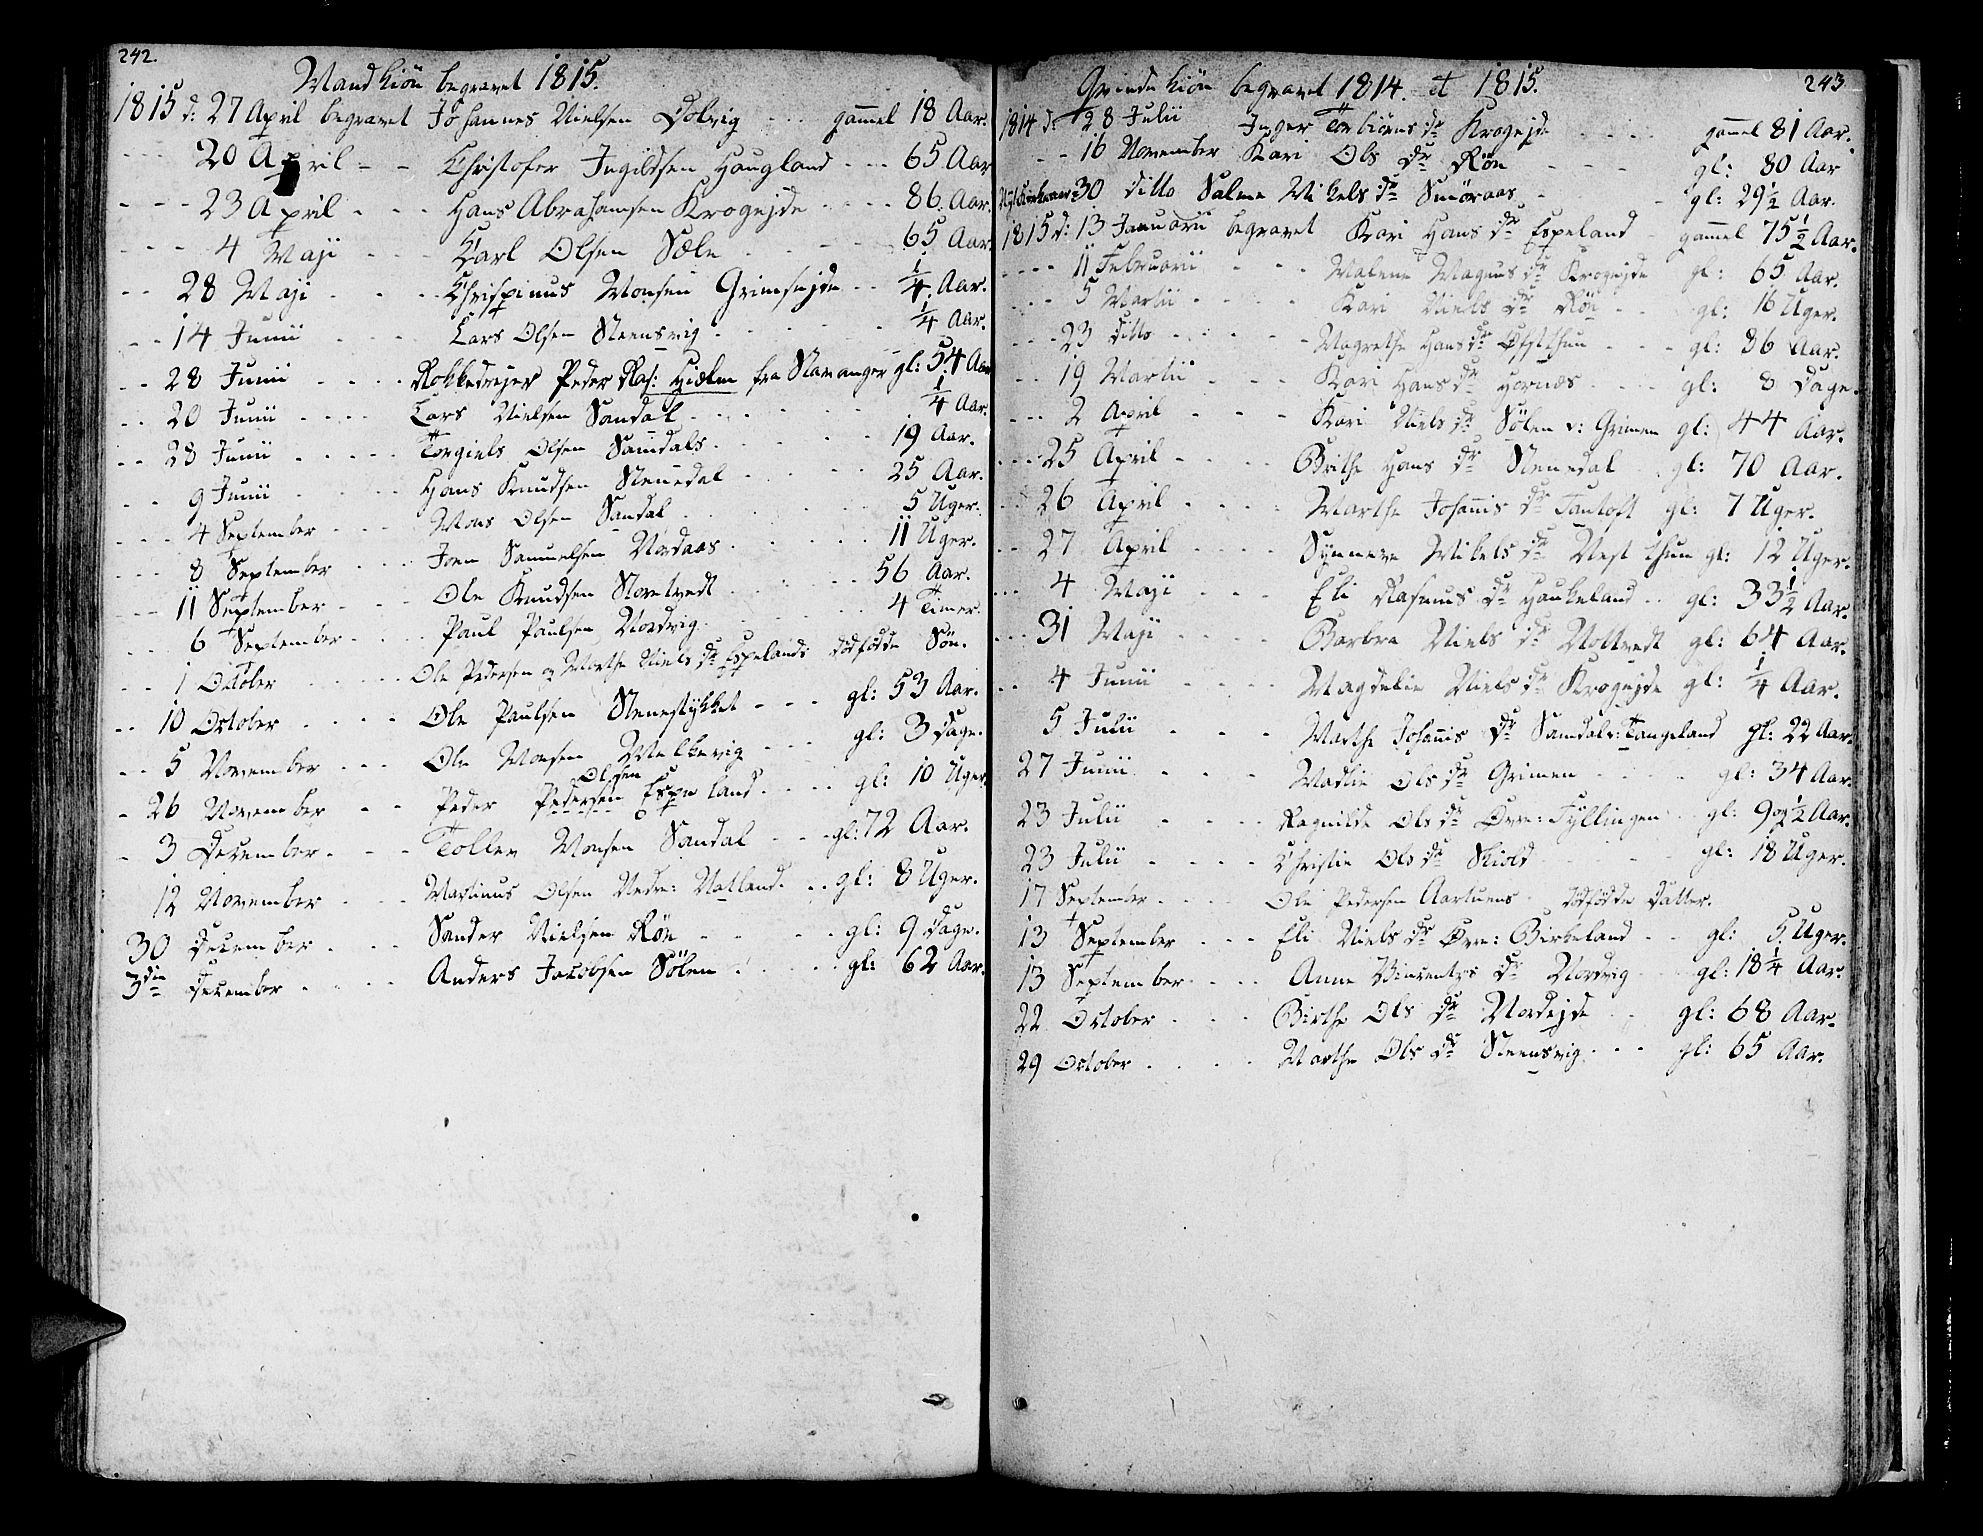 242.
Mandkiön begravet 1815.
1815 d: 27 April begravet Johannes Nielsen Dolvig gammel 18 Aar.
20 April Christofer Ingildsen Haugland 65 Aar
23 April Hans Abrahamsen Krogejde 86. Aar.
4 Maji Karl Olsen Sæle 65 Aar
28 Maji Chrispinus Monsen Grimsejde 1/4. Aar.
14 Junii Lars Olsen Steensvig 1/4 Aar.
28 Junii Rokkedrejer Peder Ras: Hiælm fra Stavanger gl: 54 Aar
20 Junii Lars Nielsen Sandal 1/4 Aar.
28 Junii Torgiels Olsen Samdals 19 Aar.
9 Junii Hans Knudsen Stenedal 25 Aar.
4 September Mons Olsen Sandal 5 Uger.
8 September Joen Samuelsen Nordaas 11 Uger.
11 September Ole Knudsen Storetvedt 56 Aar.
6 September Paul Paulsen Nordvig 4 Timer.
1 October Ole Pedersen og Marthe Niels dr Espelands dödfödde Sön.
10 October Ole Paulsen Stenestykket gl: 53 Aar.
5 November Ole Monsen Milkevig gl: 3 Dage.
26 November Peder Pedersen Olsen Espeland gl: 10 Uger.
3 December Tollev Monsen Sandal gl: 72 Aar.
12 November Martinus Olsen Nedre: Natland gl: 8 Uger.
30 December Sander Nielsen Röe gl: 9 Dage.
3die December Anders Jacobsen Sölen gl: 62 Aar.
243
Qvindekiön begravet 1814. et 1815.
1814 d: 28 Julii Inger Torbiörns dr Krogejde gammel 81 Aar.
16 November Kari Ols dr Röe gl: 80 Aar
30 ditto Salme Mikels dr Smöraas gl: 29 1/2 Aar.
1815 d: 13 Januarii begravet Kari Hans dr Espeland gammel 75 1/2 Aar.
11 Februarii Malene Magnus dr Krogejde gl: 65 Aar.
5 Martii Kari Niels dr Röe gl: 16 Uger.
23 ditto Magrethe Hans dr Öfstthun gl: 86 Aar.
19 Martii Kari Hans dr Hornæs gl: 8 Dage.
2 April Kari Niels dr Sölen v: Grimen gl: 44 Aar.
25 April Brithe Hans dr Stenedal gl: 70 Aar.
26 April Marthe Johannis dr Fantoft gl: 7 Uger.
27 April Synneve Mikels dr Nestthun gl: 12 Uger.
4 Maji Eli Rasmus dr Haukeland gl: 33 1/2 Aar.
31 Maji Barbra Niels dr Nottvedt gl: 64 Aar.
4 Junii Magdelie Niels dr Krogejde gl: 1/4 Aar.
5 Julii Marthe Johannis dr Samdal v: Tangeland gl: 22 Aar.
27 Junii Madlie Ols dr Grimen gl: 34 Aar.
23 Julii Ragnilde Ols dr Övre: Tyllingen gl: 9 og 1/2 Aar.
23 Julii Christie Ols dr Skiold gl: 18 Uger.
17 September Ole Pedersen Aartuens dödfödde Datter.
13 September Eli Niels dr Övre: Birkeland gl: 5 Uger.
13 September Anne Vincentzs dr Nordvig gl: 18 1/4 Aar.
22 October Birthe Ols dr Nordejde gl: 68 Aar.
29 October Marthe Ols dr Steensvig gl: 65 Aar.